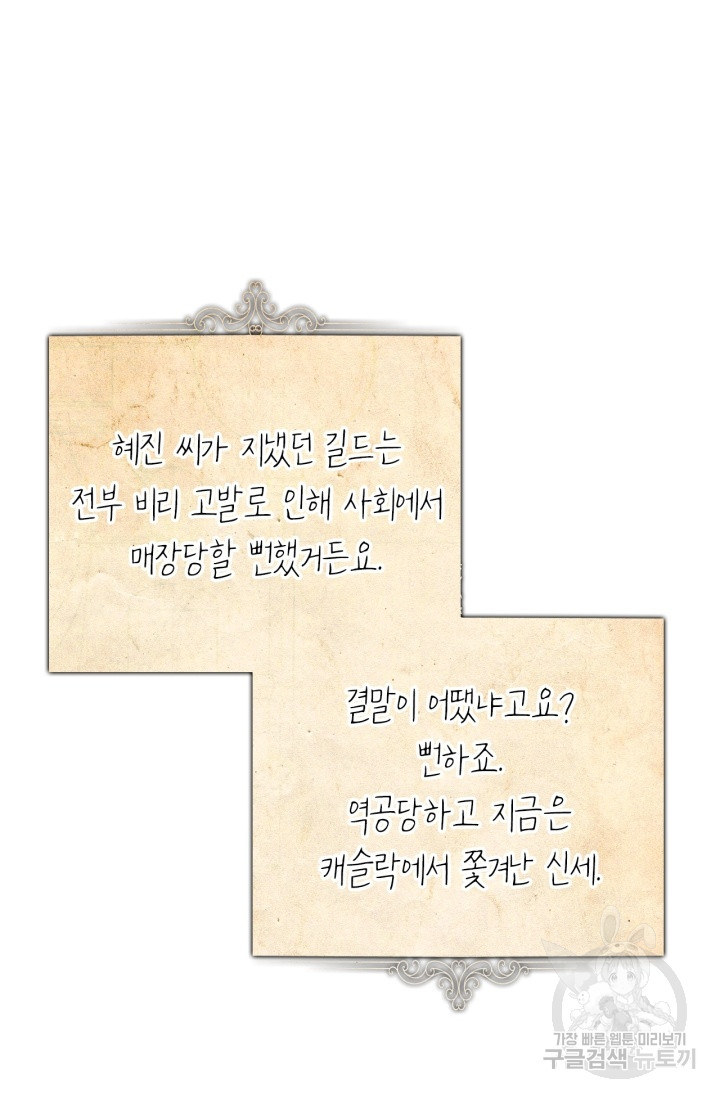 혜진 씨가 지냈던 길드는
전부 비리 고발로 인해 사회에서
매장당할 뻔했거든요.
결말이 어땠냐고요?
뻔하죠.
역공당하고 지금은
캐슬락에서 쫓겨난 신세.
가장 빠른 웹툰 미리보기
구글검색 뉴토끼